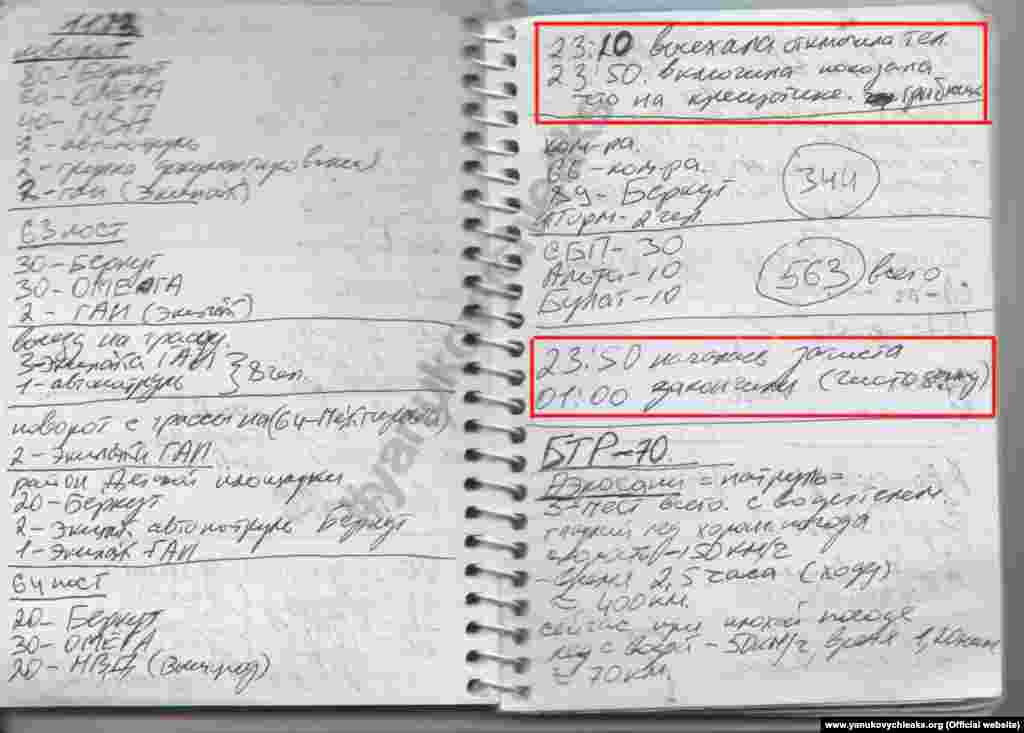 1172
поворот
80-Беркут
60-ОМЕГА
40-МВД
2-автопатруль
2-группа документирования
2-ГАИ (Экипаж)
63 пост
30-Беркут
30-ОМЕГА
2-ГАИ (Экипаж)
выезд на трассу
3-экипажа ГАИ } 8 чел.
1-автопатруль
поворот с трассы на (64-
2-экипажи ГАИ
район Детской площадки
20-Беркут
2-экипаж автопатруль Беркут
1-экипаж ГАИ
64 пост
20-Беркут
30-ОМЕГА
20-МВД (Вышгород)
23:10 выехала отключила тел.
23:50. включила показала
что на крещатике. грибник
ком-ра.
66-ком-ра.
89-Беркут
штурм-2 чел.
344
СБП-30
Альфа-10
Булат-10
563 всего
23:50 началась зачистка
01:00 закончили (чистовую)
БТР-70.
Аэросани =патруль=
5-мест всего. с водителем.
гладкий лед хорошая погода
скорость-150 км/ч
-время 2,5 часа (ходу)
≈ 400 км.
сейчас при плохой погоде
лед с водой - 50 км/ч, время
≈ 70 км.
thyanukovych
www.yanukovychleaks.org (Official website)